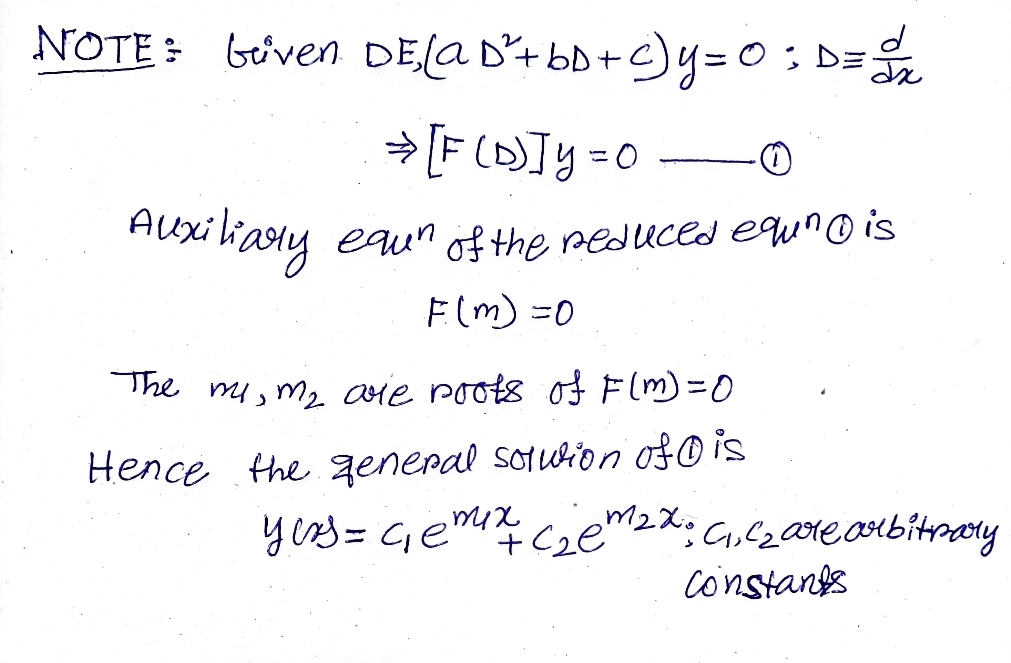 NOTE: Given DE, (aD²+bD+c)y=0; D≡d/dx
⇒[F(D)]y=0 —①
Auxiliary equn of the reduced equn ① is
F(m)=0
The m1, m2 are roots of F(m)=0
Hence the general solution of ① is
y(x)= c1e^m1x + c2e^m2x; c1,c2 are arbitrary
constants